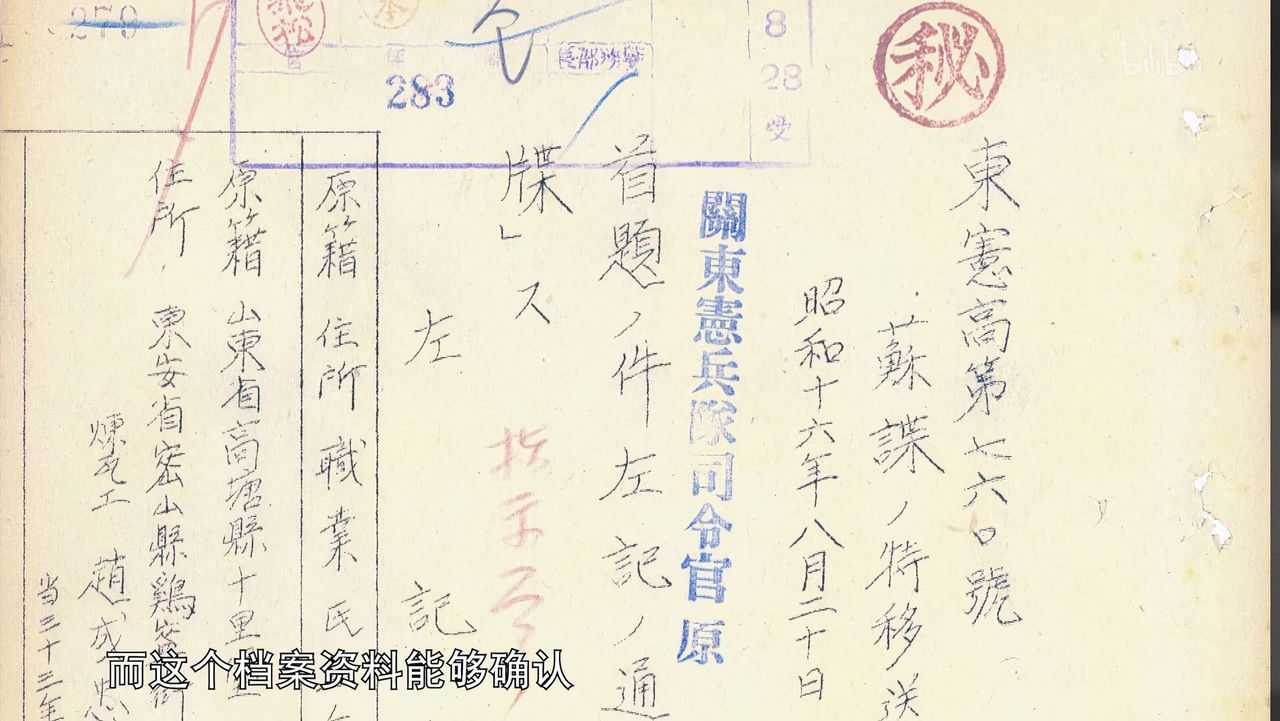 秘
東憲高第七六〇號
蘇諜ノ特移送
昭和十六年八月二十日
關東憲兵隊司令官 原
首題ノ件左記ノ通
牒」ス
左 記
指示
原籍 住所 職業 氏
原籍 山東省高唐縣十里
住所 東安省密山縣鷄
煉瓦工 趙成忠
当三十三年
8
28
受
283
270
而这个档案资料能够确认
bilibili